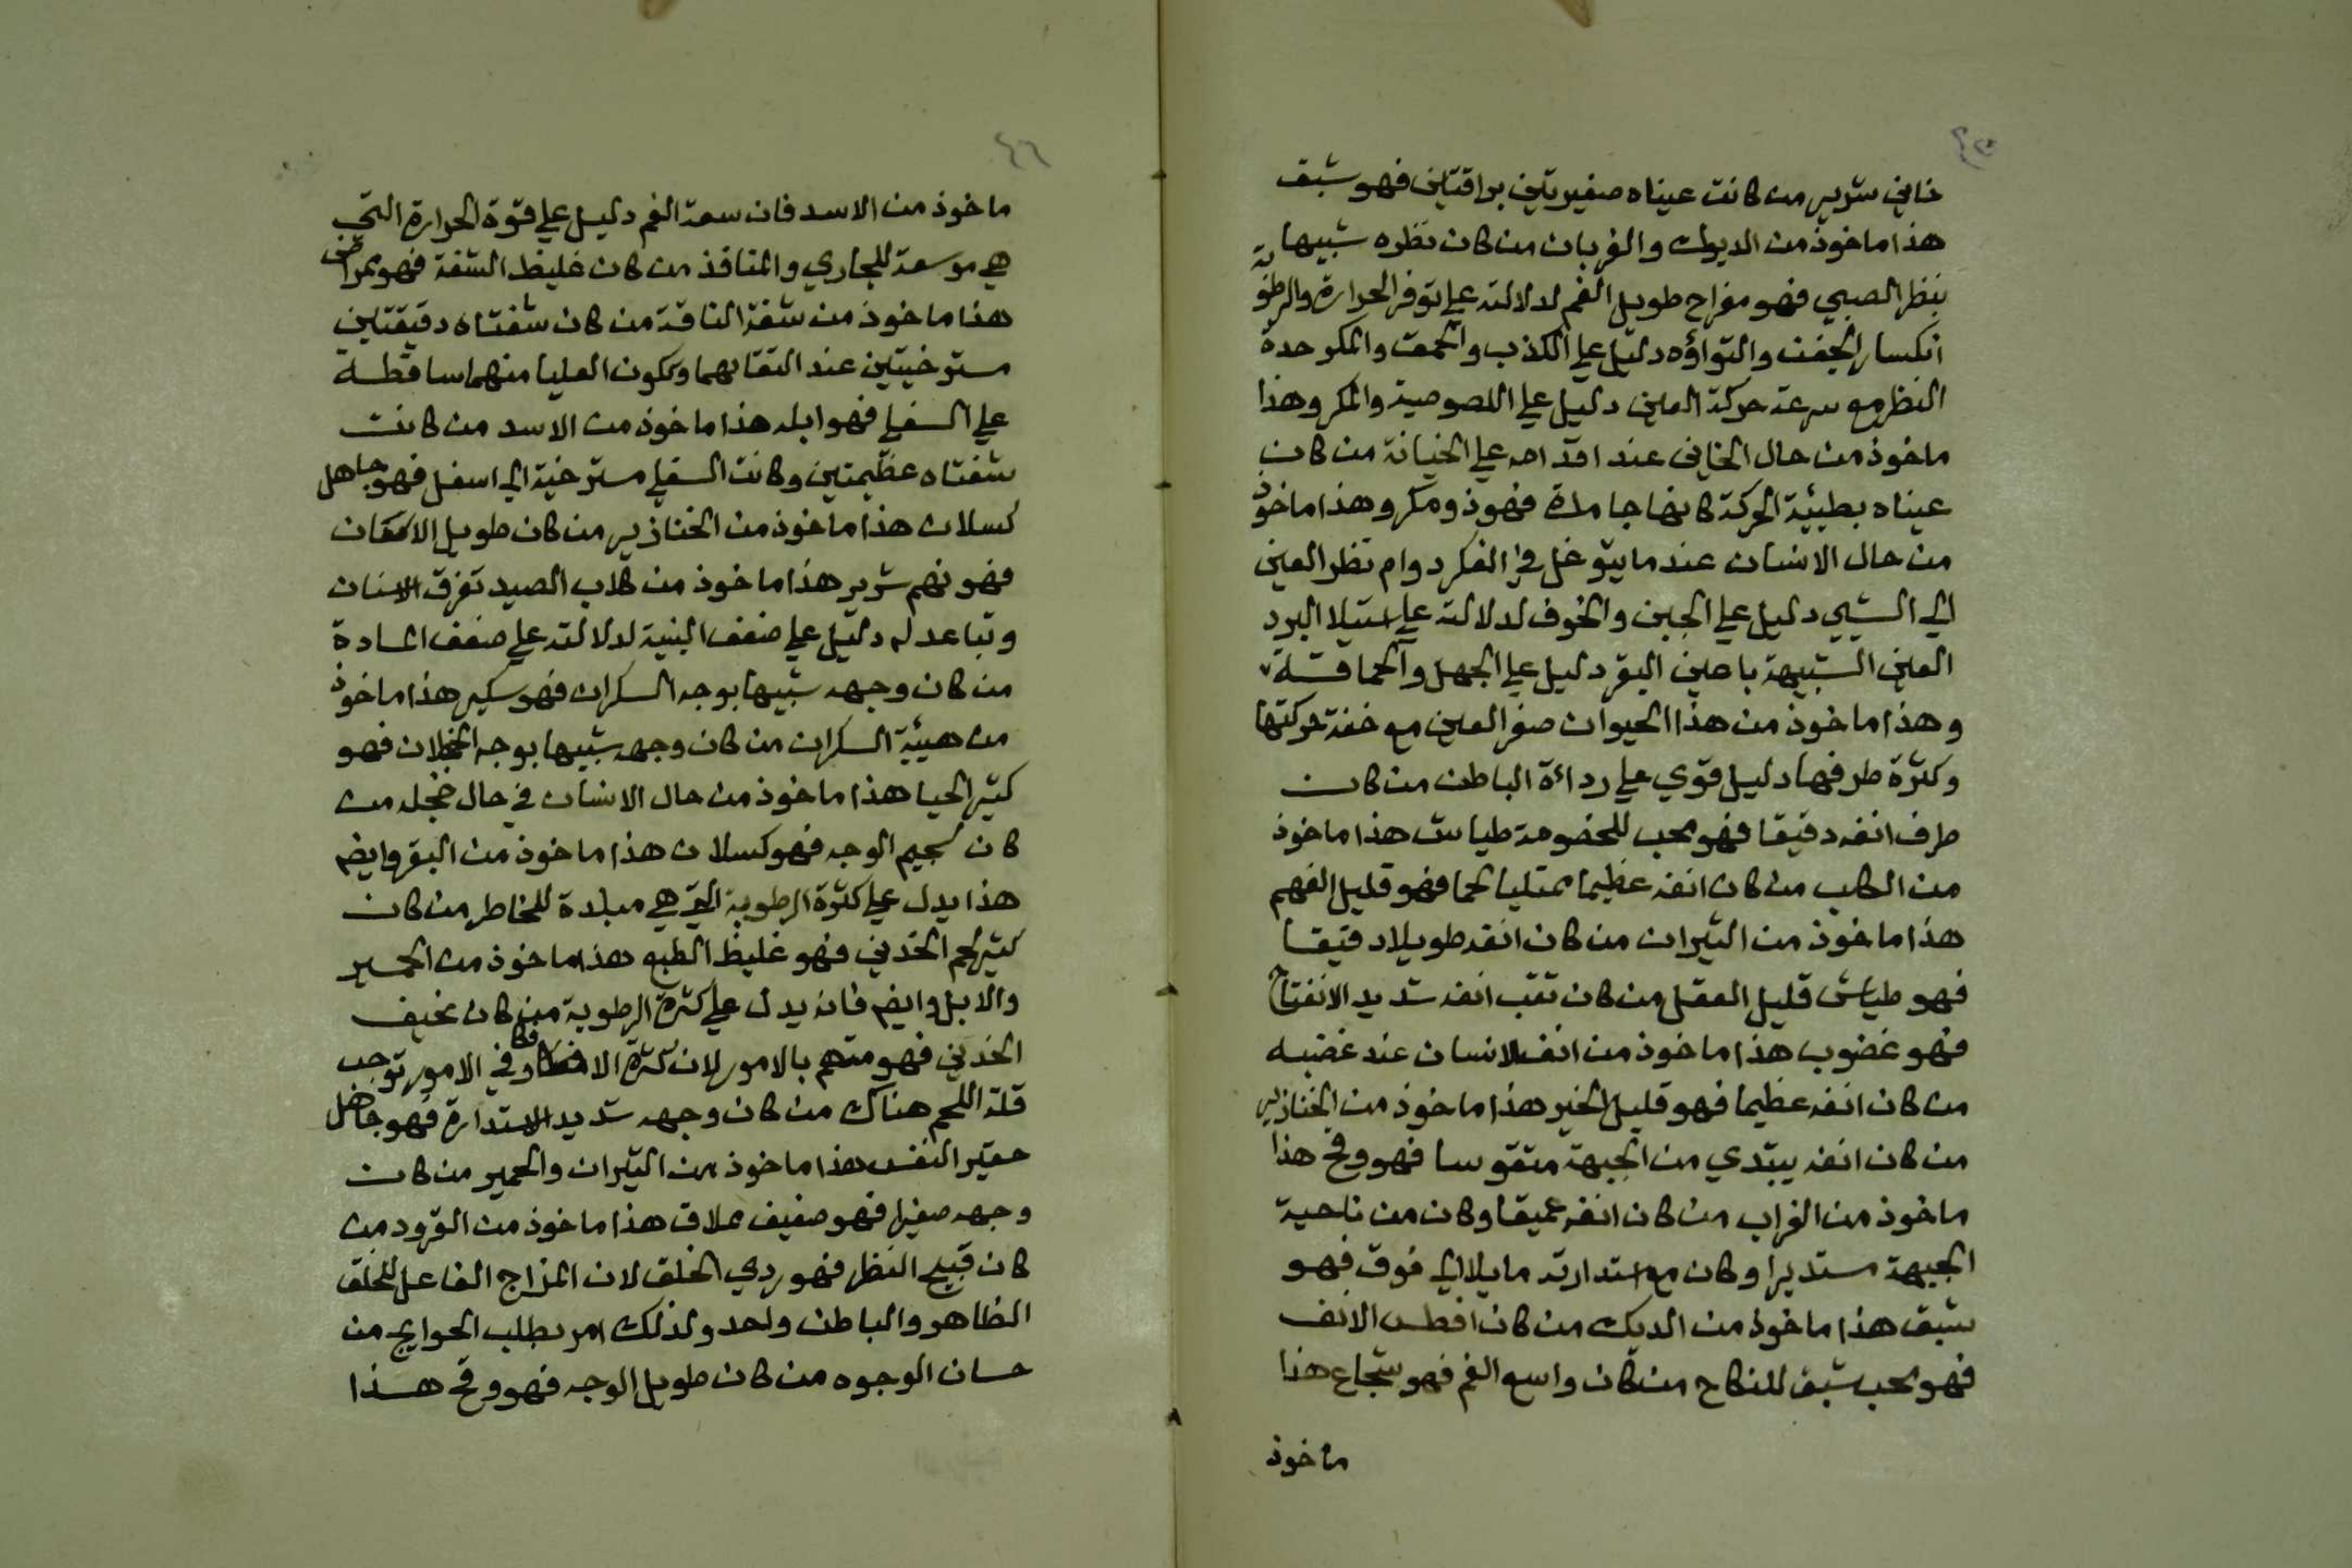 ٤٥
خاين شرير من كانت عيناه صغيرتين براقتين فهو شبق
هذا ماخوذ من الديوك والغربان من كان نظره شبيها
بنظر الصبي فهو مفراح طويل الغم لدلالته علي توفر الحرارة والرطوبة
انكسار الجفن والتواؤه دليل علي الكذب والحمق والمكر حدة
النظر مع سرعة حركة العين دليل علي اللصوصية والمكر وهذا
ماخوذ من حال الخاين عند اقدامه علي الخيانة من كان
عيناه بطيئة الحركة كانها جامدة فهو ذو مكر وهذا ماخوذ
من حال الانسان عندما يتوغل في الفكر دوام نظر العين
الي الشيي دليل علي الجبن والخوف لدلالته علي استيلا البرد
العين الشبيهة باعين البقر دليل علي الجهل والحماقة
وهذا ماخوذ من هذا الحيوان صغر العين مع خفة حركتها
وكثرة طرفها دليل قوي علي ردائة الباطن من كان
طرف انفه دقيقا فهو محب للخصومة طياش هذا ماخوذ
من الكلب من كان انفه عظيما ممتليا لحما فهو قليل الفهم
هذا ماخوذ من الثيران من كان انفه طويلا دقيقا
فهو طياش قليل العقل من كان ثقب انفه شديد الانفتاح
فهو غضوب هذا ماخوذ من انف الانسان عند غضبه
من كان انفه عظيما فهو قليل الخير هذا ماخوذ من الخنازير
من كان انفه يبتدي من الجبهة متقوسا فهو وقح هذا
ماخوذ من الغراب من كان انفه عميقا وكان من ناحية
الجبهة مستديرا وكان مع استدارته مايلا الي فوق فهو
شبق هذا ماخوذ من الديك من كان افطس الانف
فهو محب شبق للنكاح من كان واسع الفم فهو شجاع هذا
ماخوذ
٤٦
ماخوذ من الاسد فان سعة الفم دليل علي قوة الحرارة التي
هي موسعة للمجاري والمنافذ من كان غليظ الشفة فهو ممراض
هذا ماخوذ من شفة الناقة من كان شفتاه دقيقتين
مسترخيتين عند التقابهما وتكون العليا منهما ساقطة
علي السفلي فهو ابله هذا ماخوذ من الاسد من كانت
شفتاه عظيمتين وكانت السفلي مسترخية الي اسفل فهو جاهل
كسلان هذا ماخوذ من الخنازير من كان طويل
فهو نهم شرير هذا ماخوذ من كلاب الصيد تفرق الاسنان
وتباعد له دليل علي ضعف البنية لدلالته علي ضعف المادة
من كان وجهه شبيها بوجه السكران فهو سكير هذا ماخوذ
من هيئة السكران من كان وجهه شبيها بوجه الخجلان فهو
كثير الحيا هذا ماخوذ من حال الانسان في حال خجله من
كان لحيم الوجه فهو كسلان هذا ماخوذ من البقر وايضم
هذا يدل علي كثرة الرطوبة التي هي مبلدة للخاطر من كان
كثير لحم الخدين فهو غليظ الطبع هذا ماخوذ من الحمير
والابل وايضم فانه يدل علي كثرة الرطوبة من كان نحيف
الخدين فهو متهم بالامور لان كثرة الافكار في الامور توجب
قلة اللحم هناك من كان وجهه شديد الاستدارة فهو جاهل
حقير النفس هذا ماخوذ من الثيران والحمير من كان
وجهه صغيرا فهو ضعيف ملاق هذا ماخوذ من القرود من
كان قبيح النظر فهو ردي الخلق لان المزاج الفاعل للخلق
الظاهر والباطن واحد ولذلك امر بطلب الحوايج من
حسان الوجوه من كان طويل الوجه فهو وقح هذا